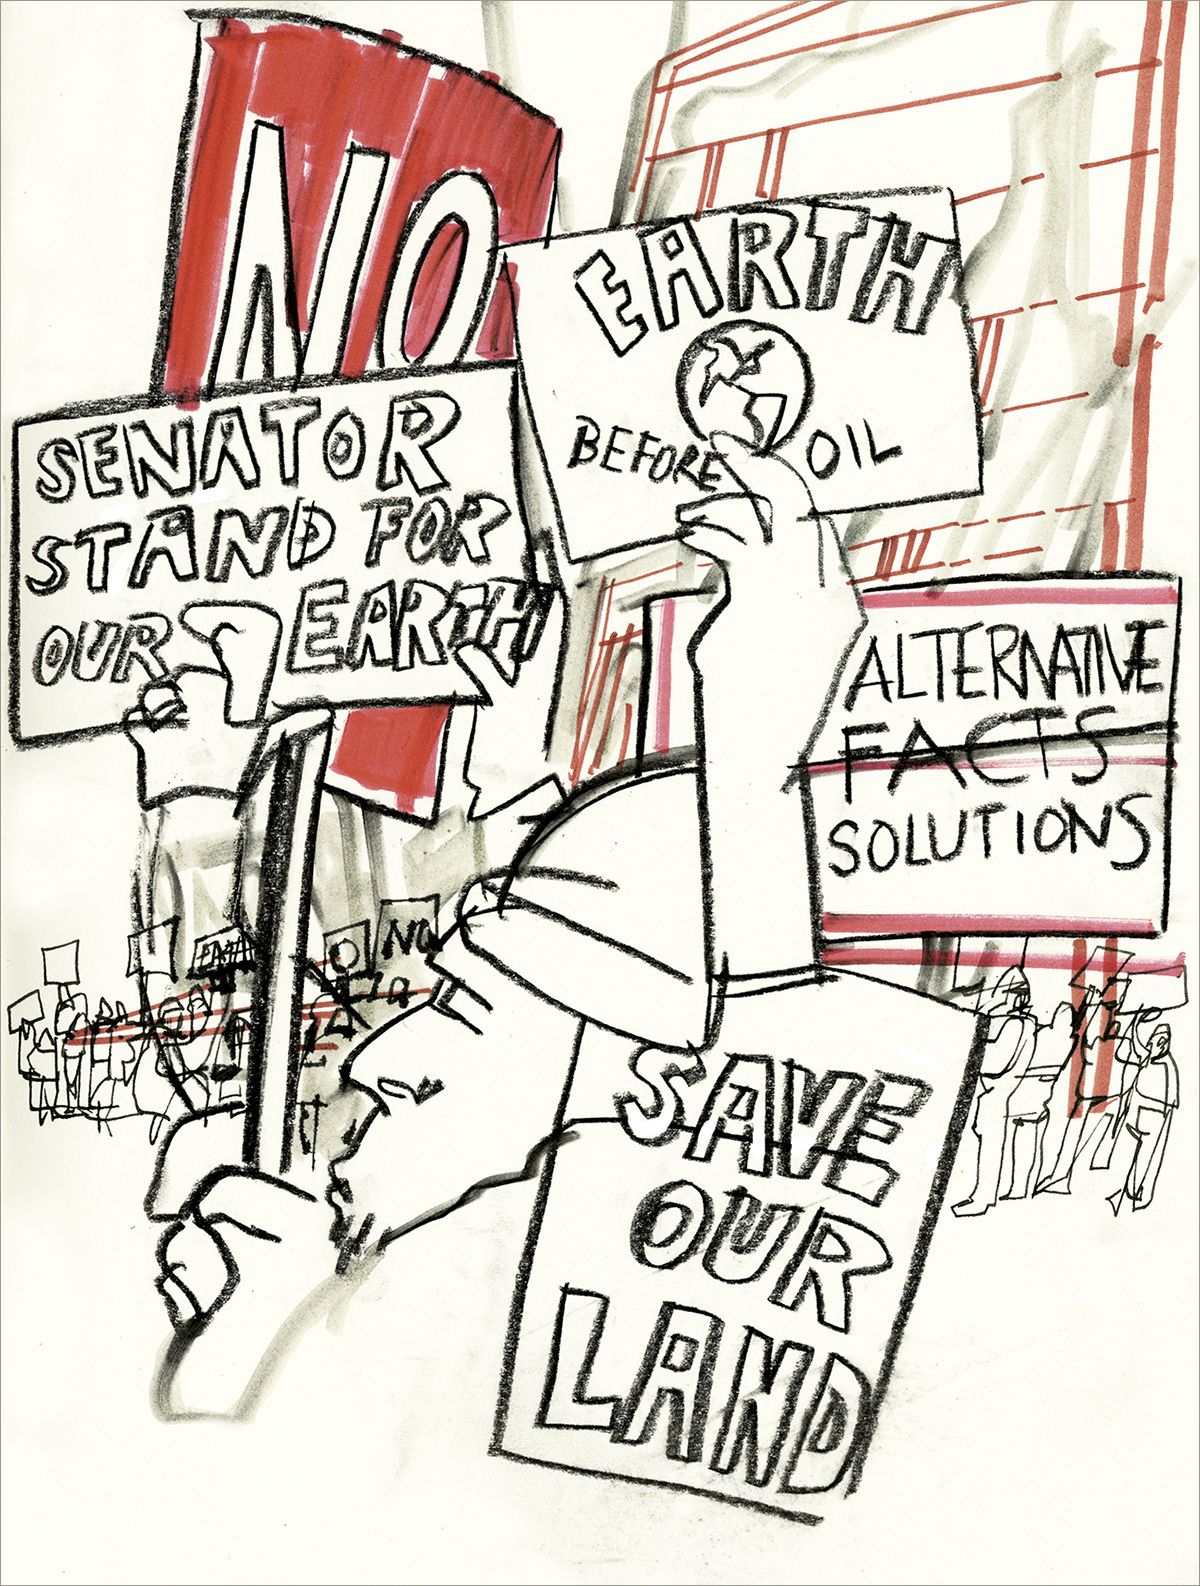 NO
EARTH
BEFORE OIL
SENATOR
STAND FOR
OUR EARTH
ALTERNATIVE
FACTS
SOLUTIONS
NO
SAVE
OUR
LAND